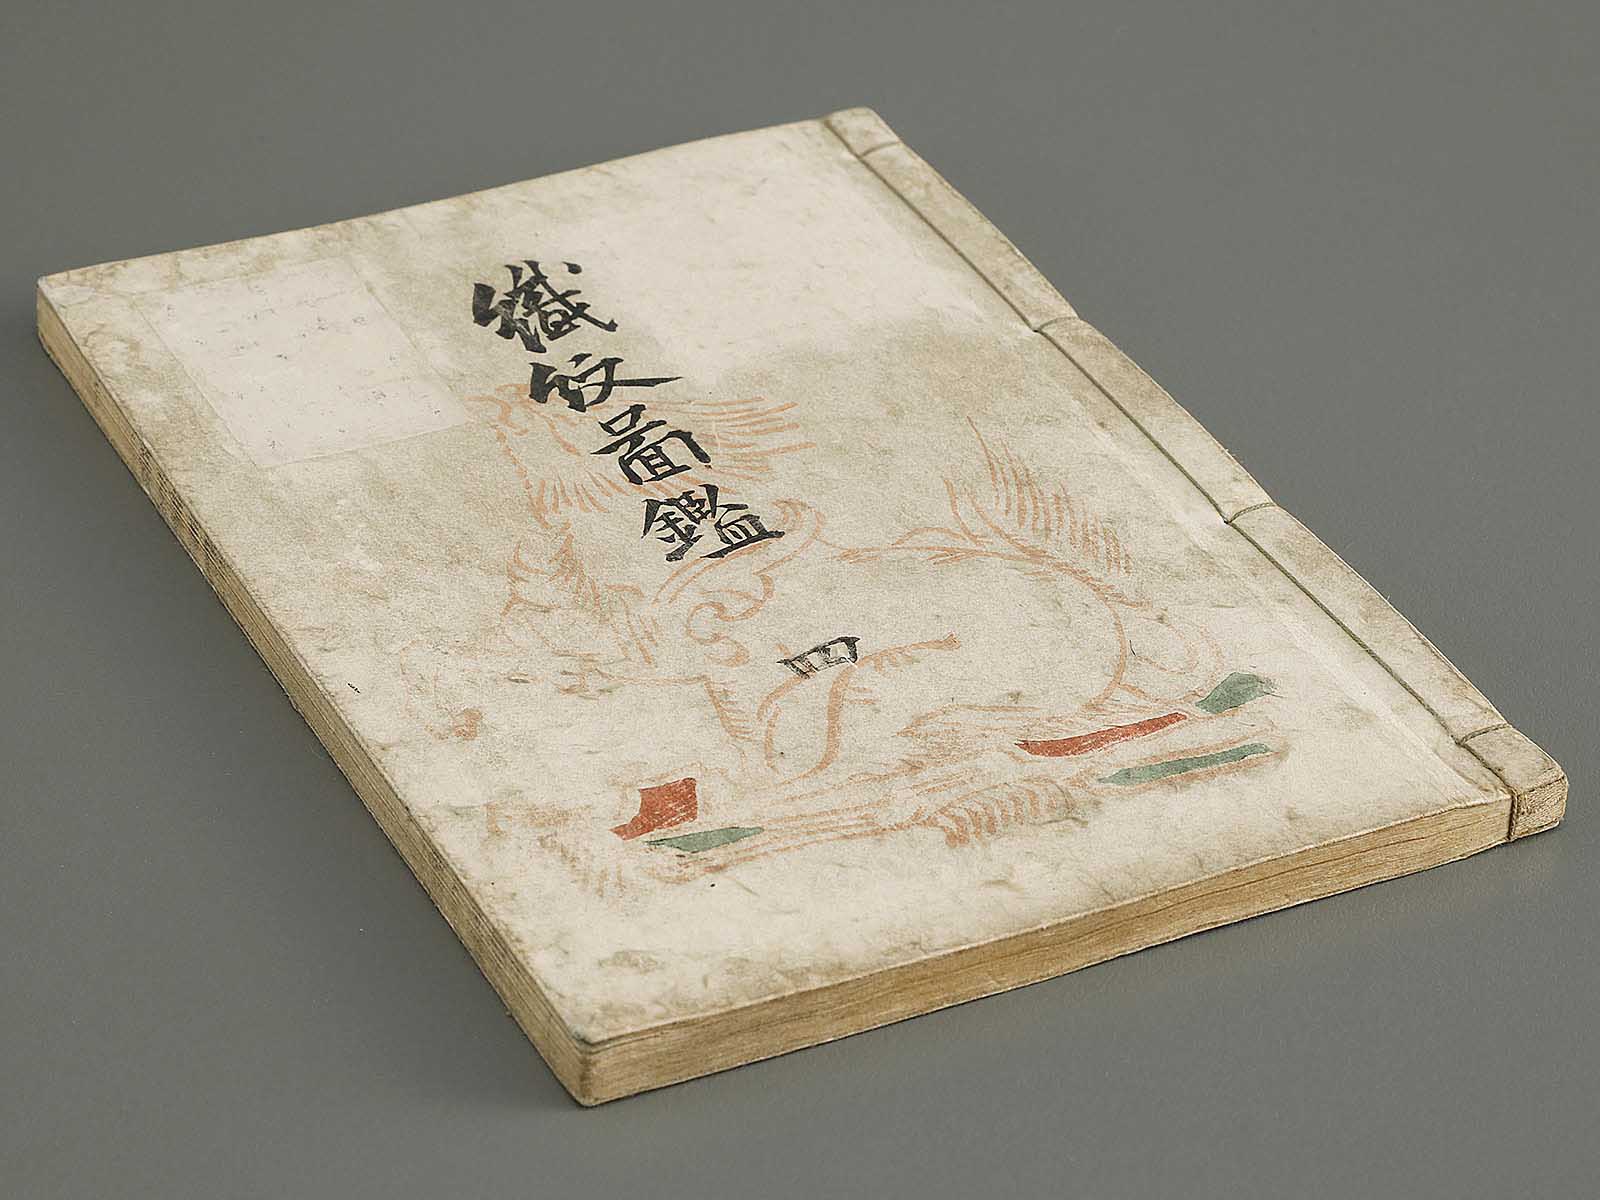 織紋圖鑑
四